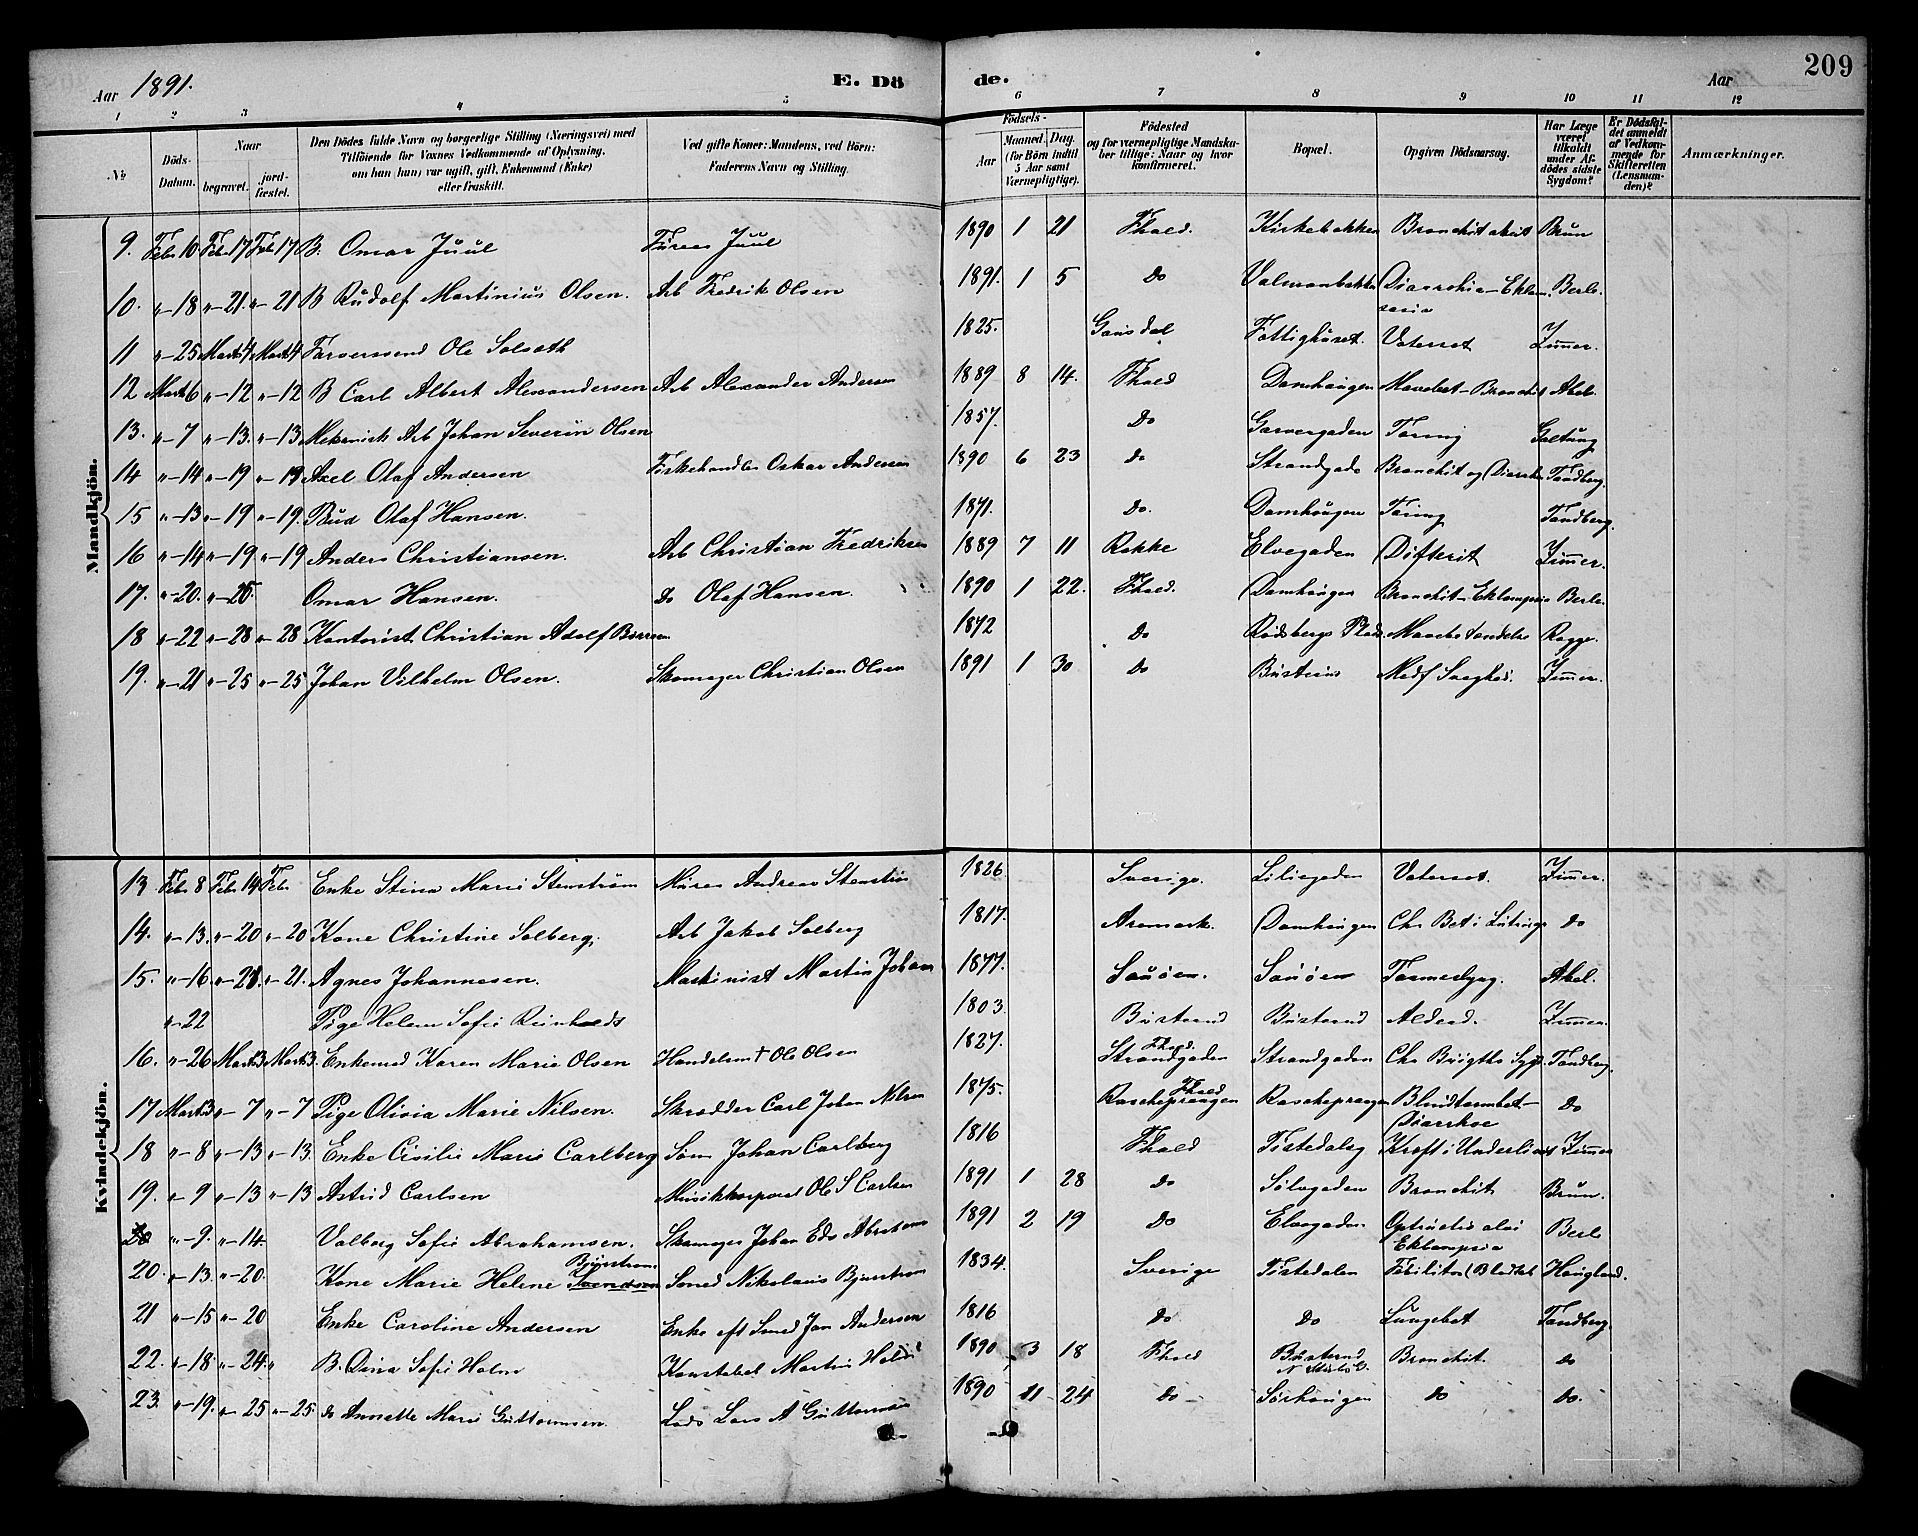 209
Aar 1891. E. Dö de. Aar
1 2 3 4 5 6 7 8 9 10 11 12
No Döds-Datum. Naar begravet. jord-fæstet. Den Dödes fulde Navn og borgerlige Stilling (Næringsvei) med Tilföiende for Voxnes Vedkommende af Oplysning, om han (hun) var ugift, gift, Enkemand (Enke) eller fraskilt. Ved gifte Koner: Mandens, ved Börn: Faderens Navn og Stilling. Födsels- Aar Maaned. Dag. (for Börn indtil 5 Aar samt Værnepligtige). Födested og for værnepligtige Mandskaber tillige: Naar og hvor konfirmeret. Bopæl. Opgiven Dödsaarsag. Har Læge været tilkaldt under Afdödes sidste Sygdom? Er Dödsfaldet anmeldt af Vedkommende for Skifteretten (Lensmanden)? Anmærkninger.
Mandkjön.
9. Febr 10 Febr 17 Febr 17 B. Omar Juul Juul 1890 1 21 Fhald. Kirkebakken Brun
10. "-18 "-21. "-21 B Rudolf Martinius Olsen. Arb Fredrik Olsen 1891. 1 5 Do Diarrohia-Eklampsia Berle.
11 "-25 Marts 4 Marts 4 Ole 1825. Fattighuset. Vatersot Zimmer.
12 Marts 6 "-12 "-12 B Carl Albert Alexandersen Arb Alexander Andersen 1889 8 14. Fhald Damhaugen Bronchit
13. "-7 "-13. "-13 Mekanisk Arb Johan Severin Olsen 1857. Do Garvergaden Tæring Galtung
14 "-14 "-19 "-19 Axel Olaf Andersen Fiskehandler Oskar Andersen 1890 6 23 do Strandgade Bronchit og Diarrohe Tandberg.
15 "-13 "-19 "-19. Bud Olaf Hansen. 1871. Do. Damhaugen Tæring Tandberg.
16 "-14 "-19 "-19 Anders Christiansen. Arb Christian Fredriksen 1889 7 11 Rokke Elvegaden Difterit Zimmer.
17. "-20. "-25 Omar Hansen. Do Olaf Hansen. 1890 1 22. Fhald. Damhaugen Bronchit-Eklampsia Berle.
18 "-22 "-28 "-28 Kontorist Christian Adolf 1872 Do Rødsbergs Plads Rogge.
19. "-21 "-25 "-25 Johan Vilhelm Olsen. Skomager Christian Olsen 1891 1 30 Do Medf Svaghed. Zimmer.
Kvindekjön.
13 Febr 8 Febr 14 Febr Enke Stina Marie Stenstrøm Murer Andreas Stenstrøm 1826. Sverige. Liliegaden Vatersot. Zimmer.
14. "-13. "-20 "-20 Kone Christine Solberg. Arb Jakob Solberg 1817. Aremark. Damhaugen Do
15. "-16 "-21. "-21. Agnes Johannesen. Maskinist Martin Johan 1877. Sauøen. Sauøen
"-22 Pige Helene Sofie 1803. Alderd. Zimmer.
16. "-26 Marts 3 Marts 3. Enkemad Karen Marie Olsen Handelsm † Ole Olsen 1827. Fhald. Strandgaden Strandgaden Tandberg.
17 Marts 3 "-7 "-7 Pige Olivia Marie Nilsen. Skrædder Carl Johan Nilsen 1875. Fhald Blindtarmbet- Diarrhoe Do
18 "-8 "-13 "-13. Enke Cisilie Marie Carlberg Søn Johan Carlberg 1816 Fhald Tistedalen Kræft i Underlivet Zimmer
19. "-9 "-13 "-13 Astrid Carlsen Musikkorporal Ole S Carlsen 1891 1 28 do Sølvgaden Bronchit Brun.
20 "-9. "-14. Valborg Sofie Abrahamsen. Skomager Johan Edv Abrahams 1891 2 19 Do Elvegaden Eklampsia Berle
20. "-13. "-20. Kone Marie Helene Svendsen Bjurstrøm Smed Nikolaus Bjurstrøm 1834. Sverige Tistedalen Haugland.
21 "-15 "-20 Enke Caroline Andersen Enke eft Smed Jan Andersen 1816 do Do Lungebet Tandberg.
22. "-18 "-24. " B. Dina Sofie Holm Konstabel Martin Holm 1890 3 18 Fhald Bronchit. do
23. "-19. "-25 "-25. do Annette Marie Guttormsen. Lods Lars A Guttormsen 1890 11 24 Do Sørhaugen do do.